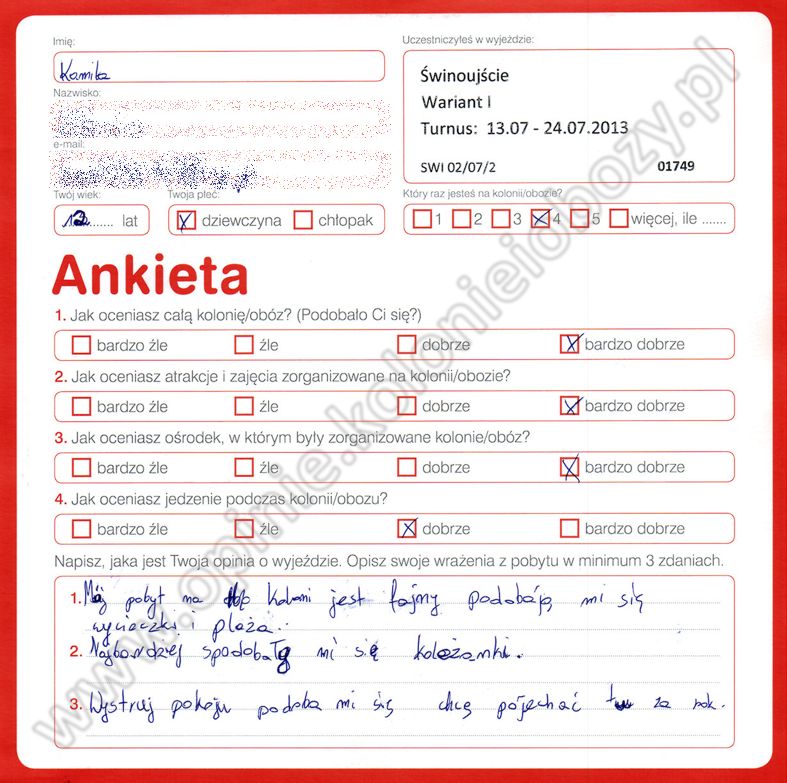 Imię:
Kamila
Uczestniczyłeś w wyjeździe:
Świnoujście
Wariant I
Turnus: 13.07 - 24.07.2013
SWI 02/07/2 01749
Nazwisko:
e-mail:
Twój wiek:
12 ....... lat
Twoja płeć:
dziewczyna chłopak
Który raz jesteś na kolonii/obozie?
1 2 3 4 5 więcej, ile .......
Ankieta
1. Jak oceniasz całą kolonię/obóz? (Podobało Ci się?)
bardzo źle źle dobrze bardzo dobrze
2. Jak oceniasz atrakcje i zajęcia zorganizowane na kolonii/obozie?
bardzo źle źle dobrze bardzo dobrze
3. Jak oceniasz ośrodek, w którym były zorganizowane kolonie/obóz?
bardzo źle źle dobrze bardzo dobrze
4. Jak oceniasz jedzenie podczas kolonii/obozu?
bardzo źle źle dobrze bardzo dobrze
Napisz, jaka jest Twoja opinia o wyjeździe. Opisz swoje wrażenia z pobytu w minimum 3 zdaniach.
1. Mój pobyt na Koloni jest fajny podobają mi się
wycieczki i plaża.
2. Najbardziej spodobały mi się koleżanki.
3. Wystruj pokoju podoba mi się chcę pojechać tu za rok.
www.opinie.kolonieiobozy.pl